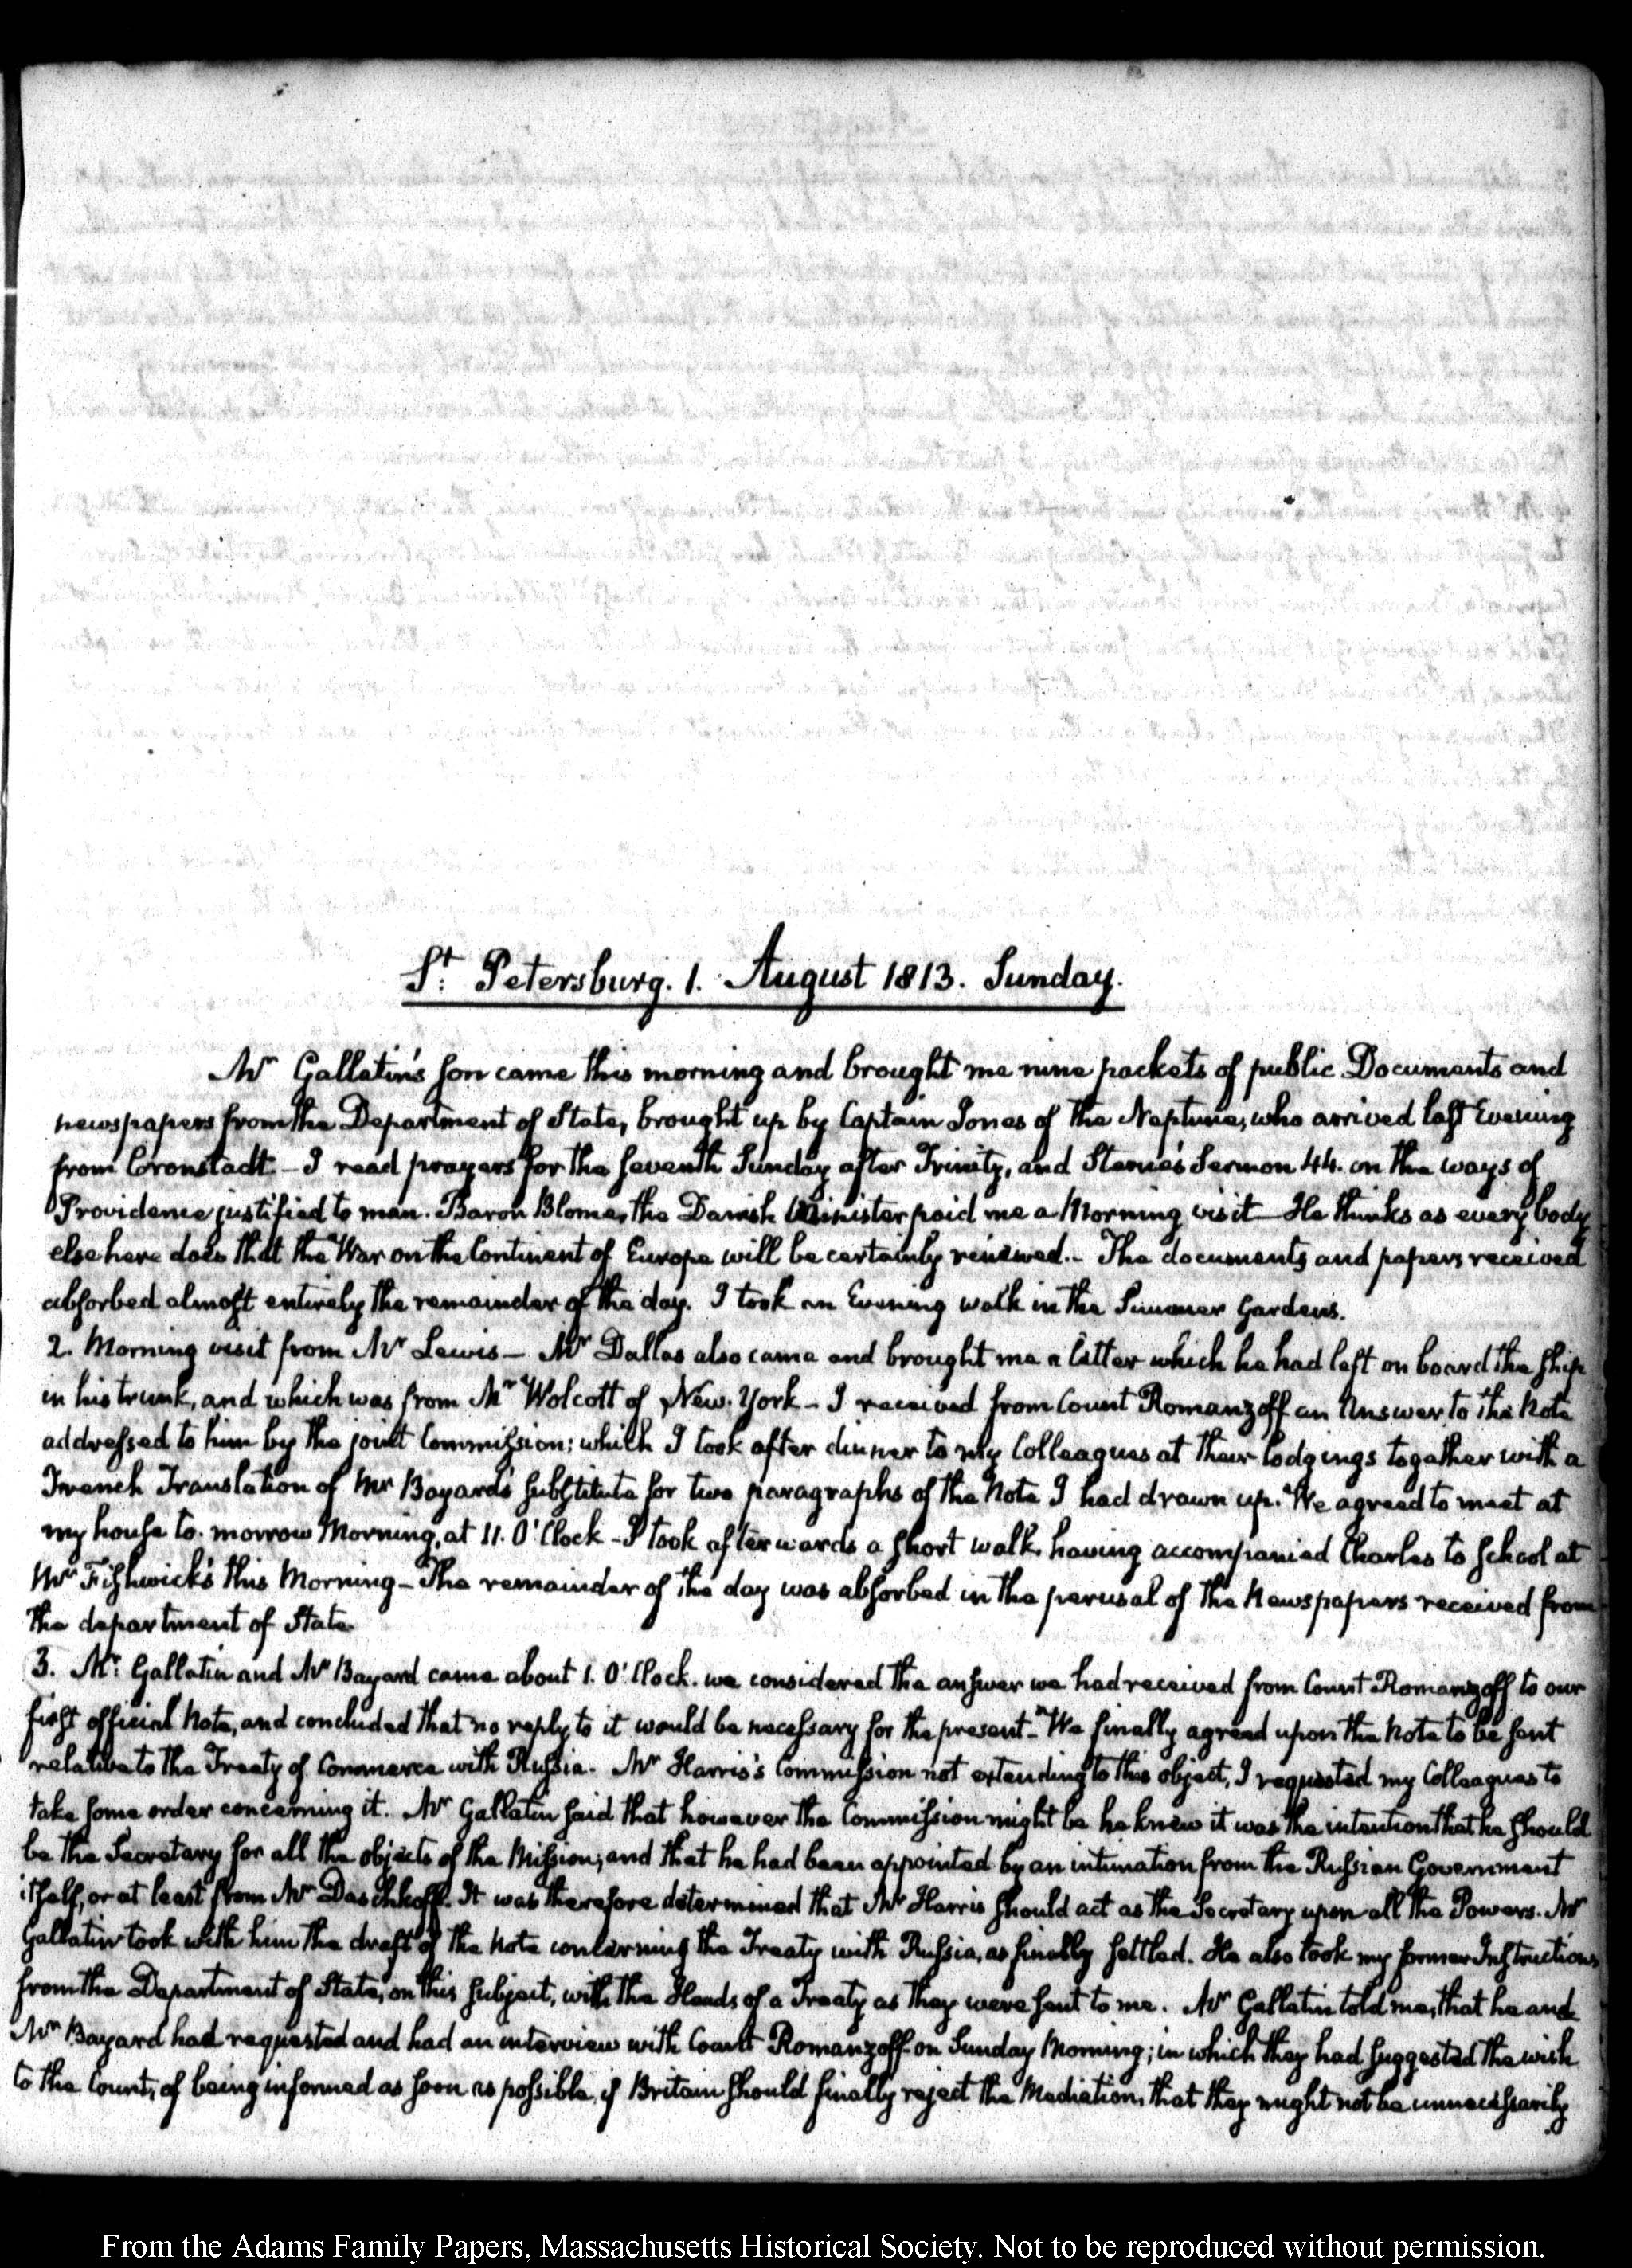 St: Petersburg. 1. August 1813. Sunday.
Mr Gallatin's son came this morning and brought me nine packets of public Documents and
newspapers from the Department of State, brought up by Captain Jones of the Neptune, who arrived last Evening
from Cronstadt – I read prayers for the seventh Sunday after Trinity, and Sterne's Sermon 44. on the ways of
Providence justified to man. Baron Blome, the Danish Minister paid me a Morning visit – He thinks as every body
else here does that the War on the Continent of Europe will be certainly renewed. – The documents and papers received
absorbed almost entirely the remainder of the day. I took an Evening walk in the Summer Gardens.
2. Morning visit from Mr Lewis – Mr Dallas also came and brought me a letter which he had left on board the ship
in his trunk, and which was from Mr Wolcott of New. York – I received from Count Romanzoff an Answer to the Note
addressed to him by the joint Commission; which I took after dinner to my Colleagues at their lodgings together with a
French Translation of Mr Bayard's substitute for two paragraphs of the Note I had drawn up. We agreed to meet at
my house to-morrow Morning, at 11. O'Clock – I took afterwards a short walk, having accompanied Charles to School at
Mr Fishwick's this Morning – The remainder of the day was absorbed in the perusal of the Newspapers received from
the department of State.
3. Mr: Gallatin and Mr Bayard came about 1. O'Clock. we considered the answer we had received from Count Romanzoff to our
first official Note, and concluded that no reply to it would be necessary for the present – We finally agreed upon the Note to be sent
relative to the Treaty of Commerce with Russia. Mr Harris's Commission not extending to this object, I requested my Colleagues to
take some order concerning it. Mr Gallatin said that however the Commission might be he knew it was the intention that he should
be the Secretary for all the objects of the Mission; and that he had been appointed by an intimation from the Russian Government
itself, or at least from Mr Daschkoff. It was therefore determined that Mr Harris should act as the Secretary upon all the Powers. Mr
Gallatin took with him the draft of the Note concerning the Treaty with Russia, as finally settled. He also took my former Instructions
from the Department of State, on this subject, with the Heads of a Treaty as they were sent to me. Mr Gallatin told me, that he and
Mr Bayard had requested and had an interview with Count Romanzoff on Sunday Morning; in which they had suggested the wish
to the Count, of being informed as soon as possible, if Britain should finally reject the Mediation, that they might not be unnecessarily
From the Adams Family Papers, Massachusetts Historical Society. Not to be reproduced without permission.